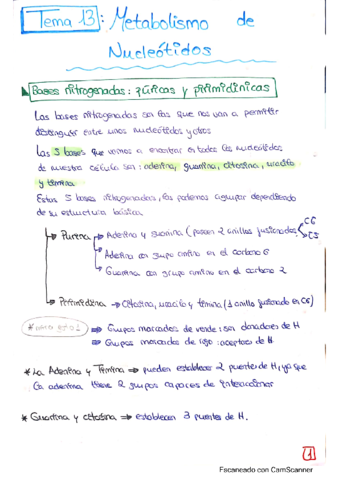 Tema 13: Metabolismo de
Nucleótidos
Bases nitrogenadas: púricas y pirimidínicas
Las bases nitrogenadas son las que nos van a permitir
distinguir entre unos nucleótidos y otros
Las 5 bases que vamos a encontrar en todos los nucleótidos
de nuestra célula son: adenina, guanina, citosina, uracilo
y timina.
Estas 5 bases nitrogenadas, las podemos agrupar dependiendo
de su estructura básica.
→ Purina → Adenina y guanina (poseen 2 anillos fusionados) → C6
→ C5
→ Adenina con grupo amino en el carbono 6
→ Guanina con grupo amino en el carbono 2
→ Pirimidina → Citosina, uracilo y timina (1 anillo fusionado en C6)
⇒ Grupos marcados de verde: son donadores de H
⇒ Grupos marcados de rojo: aceptores de H
* La Adenina y Timina ⇒ pueden establecer 2 puentes de H, ya que
la adenina tiene 2 grupos capaces de interaccionar
* Guanina y citosina ⇒ establecen 3 puentes de H.
1
Escaneado con CamScanner